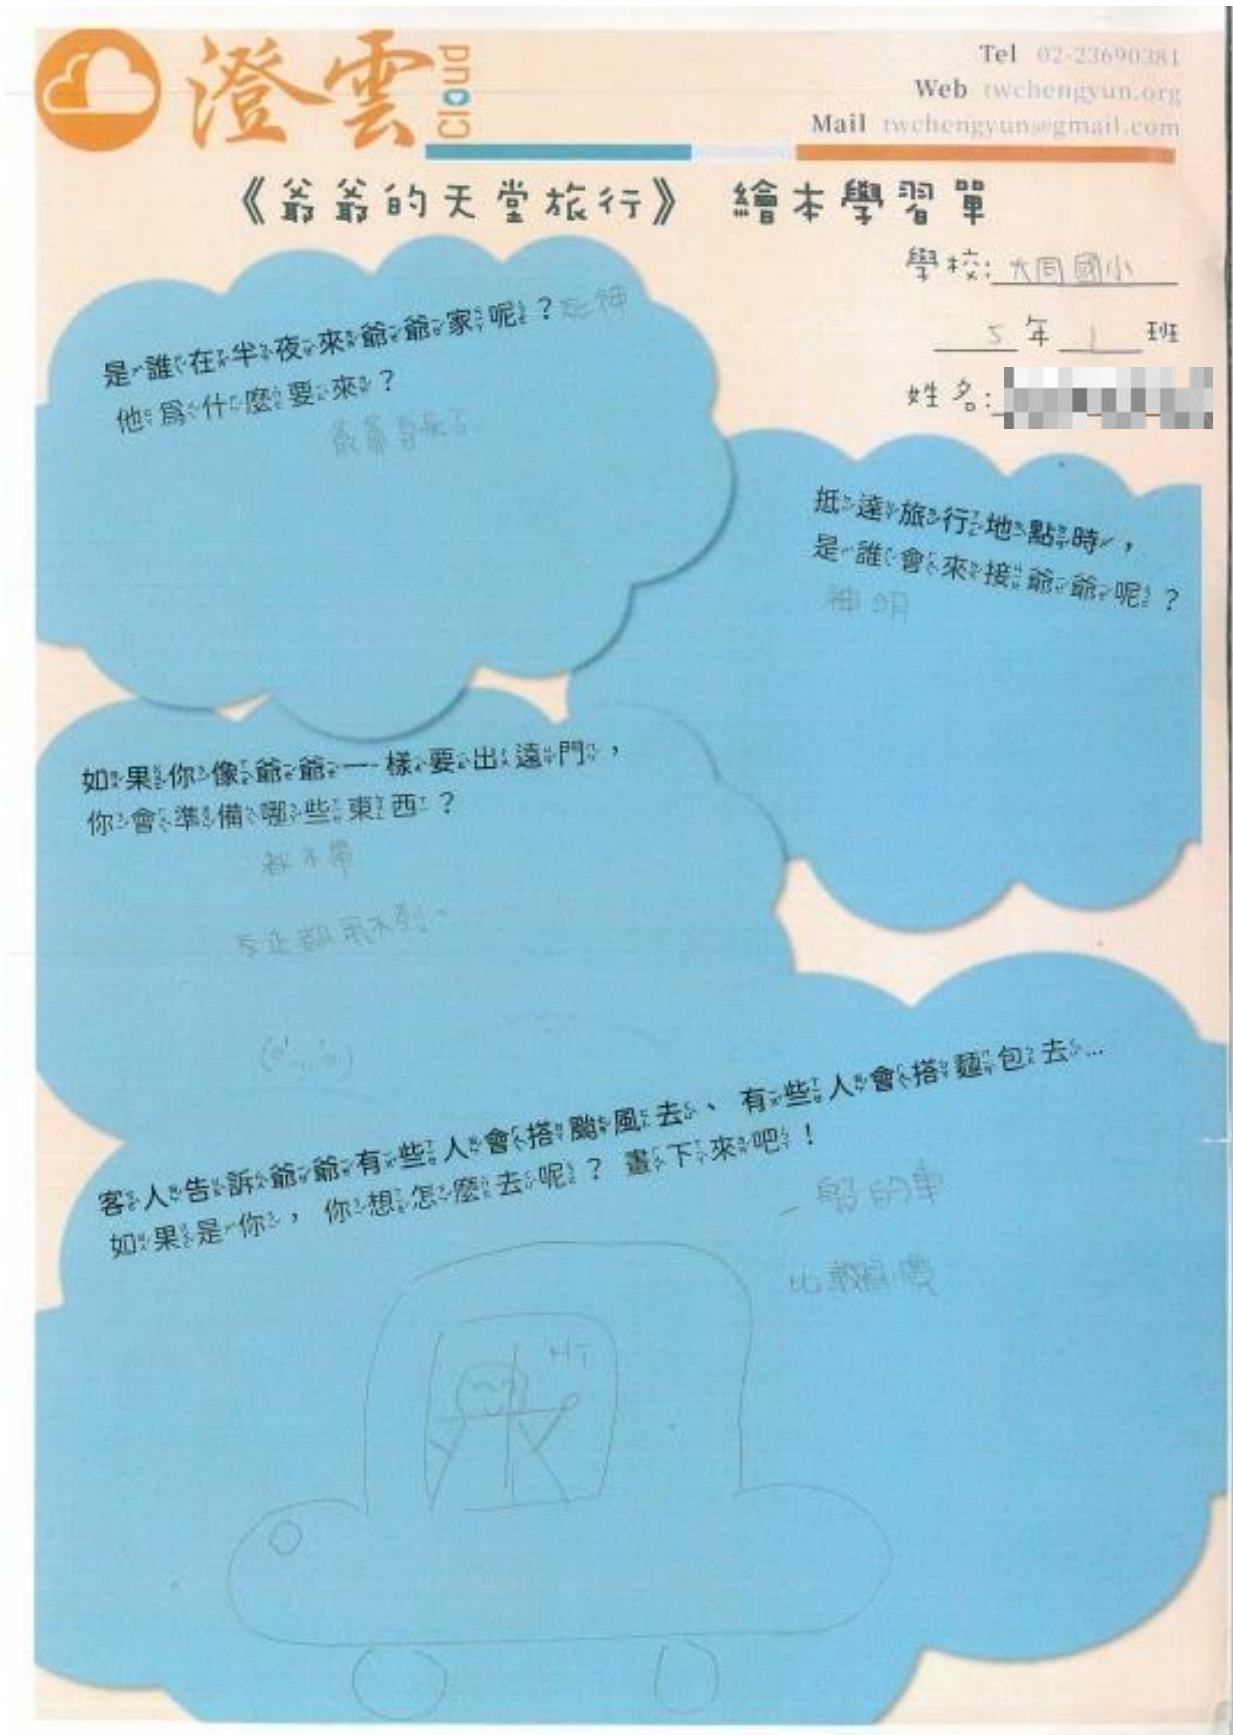 澄雲 Cloud
Tel 02-23690381
Web twchengyun.org
Mail twchengyun@gmail.com
《爺爺的天堂旅行》 繪本學習單
學校:大同國小
5年1班
姓名:
是誰在半夜來爺爺家呢?死神
他為什麼要來?
爺爺
抵達旅行地點時,
是誰會來接爺爺呢?
神明
如果你像爺爺一樣要出遠門,
你會準備哪些東西?
都不帶
反正都用不到
客人告訴爺爺有些人會搭颱風去、有些人會搭麵包去...
如果是你, 你想怎麼去呢? 畫下來吧!
一般的車
比較
HI